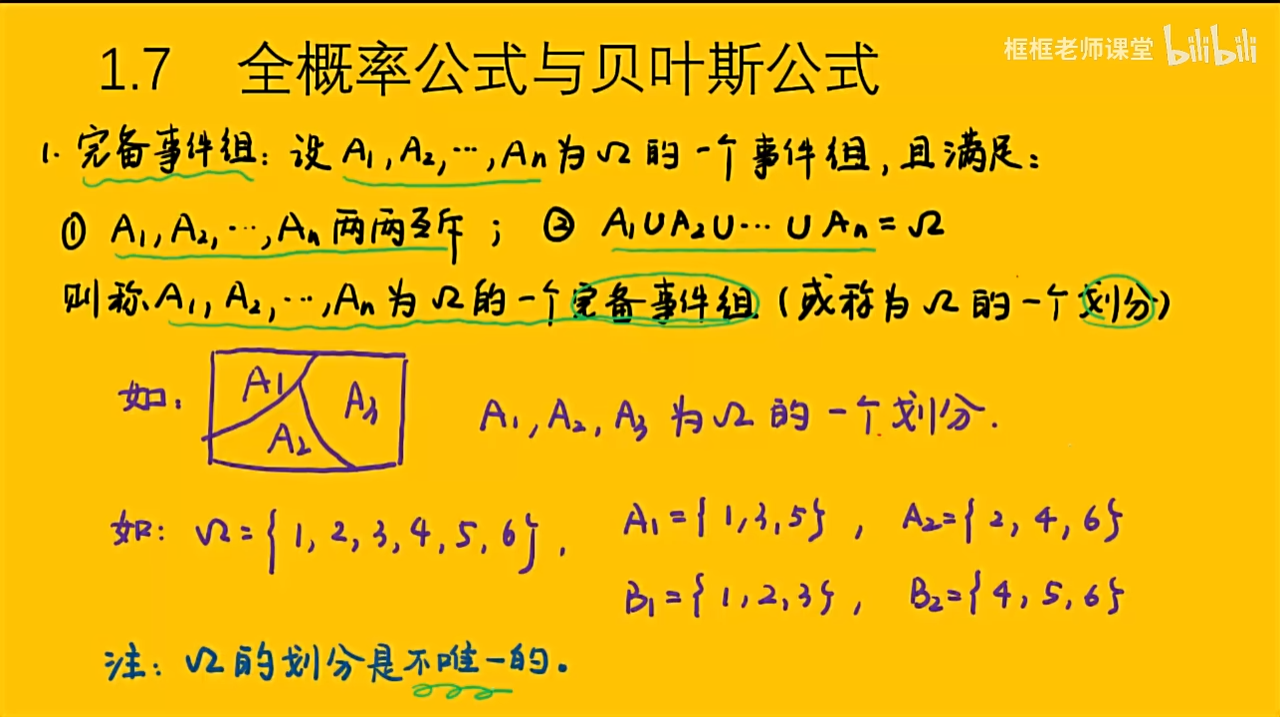 1.7 全概率公式与贝叶斯公式
框框老师课堂 bilibili
1. 完备事件组: 设 A₁, A₂, ⋯, Aₙ 为 Ω 的一个事件组, 且满足:
① A₁, A₂, ⋯, Aₙ 两两互斥 ; ② A₁∪A₂∪⋯∪Aₙ=Ω
则称 A₁, A₂, ⋯, Aₙ 为 Ω 的一个完备事件组 (或称为 Ω 的一个划分)
如: A₁ A₂ A₃ A₁, A₂, A₃ 为 Ω 的一个划分.
如: Ω={1, 2, 3, 4, 5, 6}, A₁={1,3,5}, A₂={2, 4, 6}
B₁={1,2,3}, B₂={4, 5, 6}
注: Ω 的划分是不唯一的。